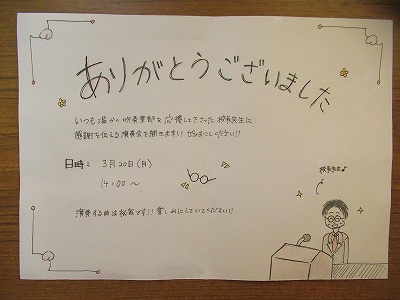 ありがとうございました
いつも温かく吹奏楽部を応援して下さった校長先生に
感謝を伝える演奏会を開きます!! ぜひおこしください!!
日時: 3月20日(月)
14:00〜
校長先生♪
演奏する曲は秘密です!! 楽しみにしていてください!!